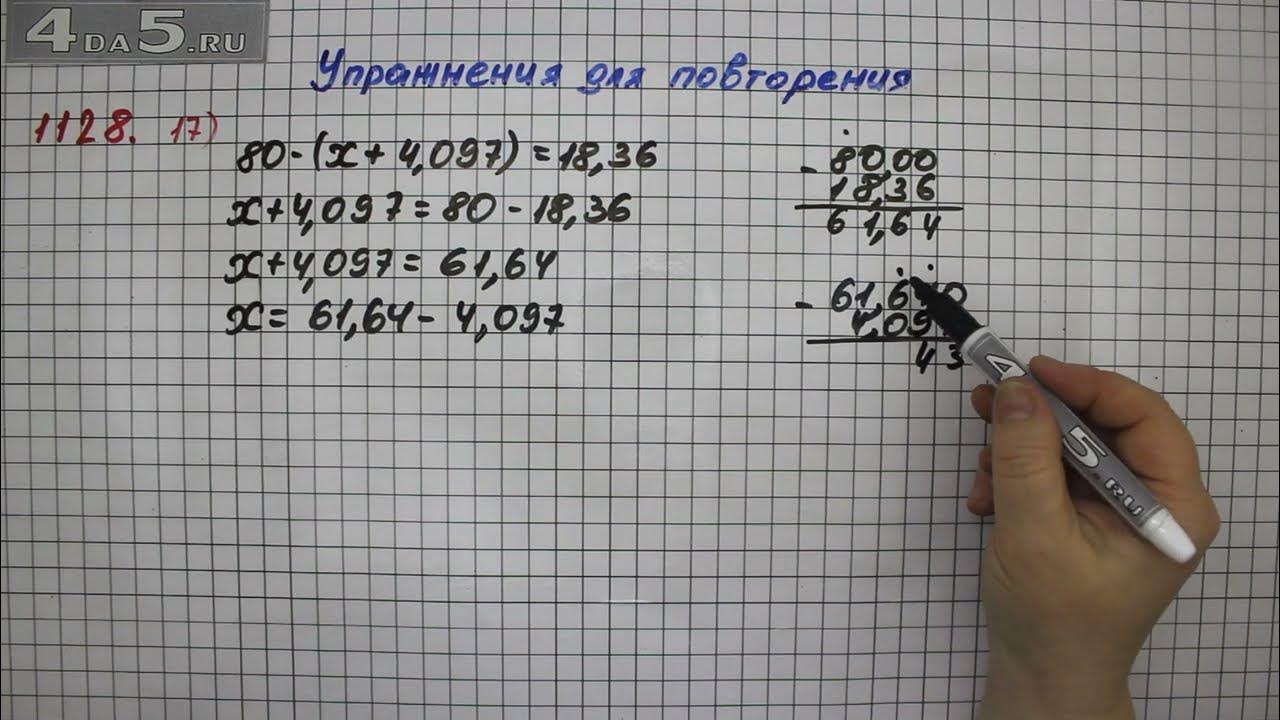 4DA5.RU
Упражнения для повторения
1128. 17)
80-(x+4,097)=18,36
x+4,097=80-18,36
x+4,097=61,64
x=61,64-4,097
-80,00
18,36
61,64
-61,640
4,09
43
4 5.RU